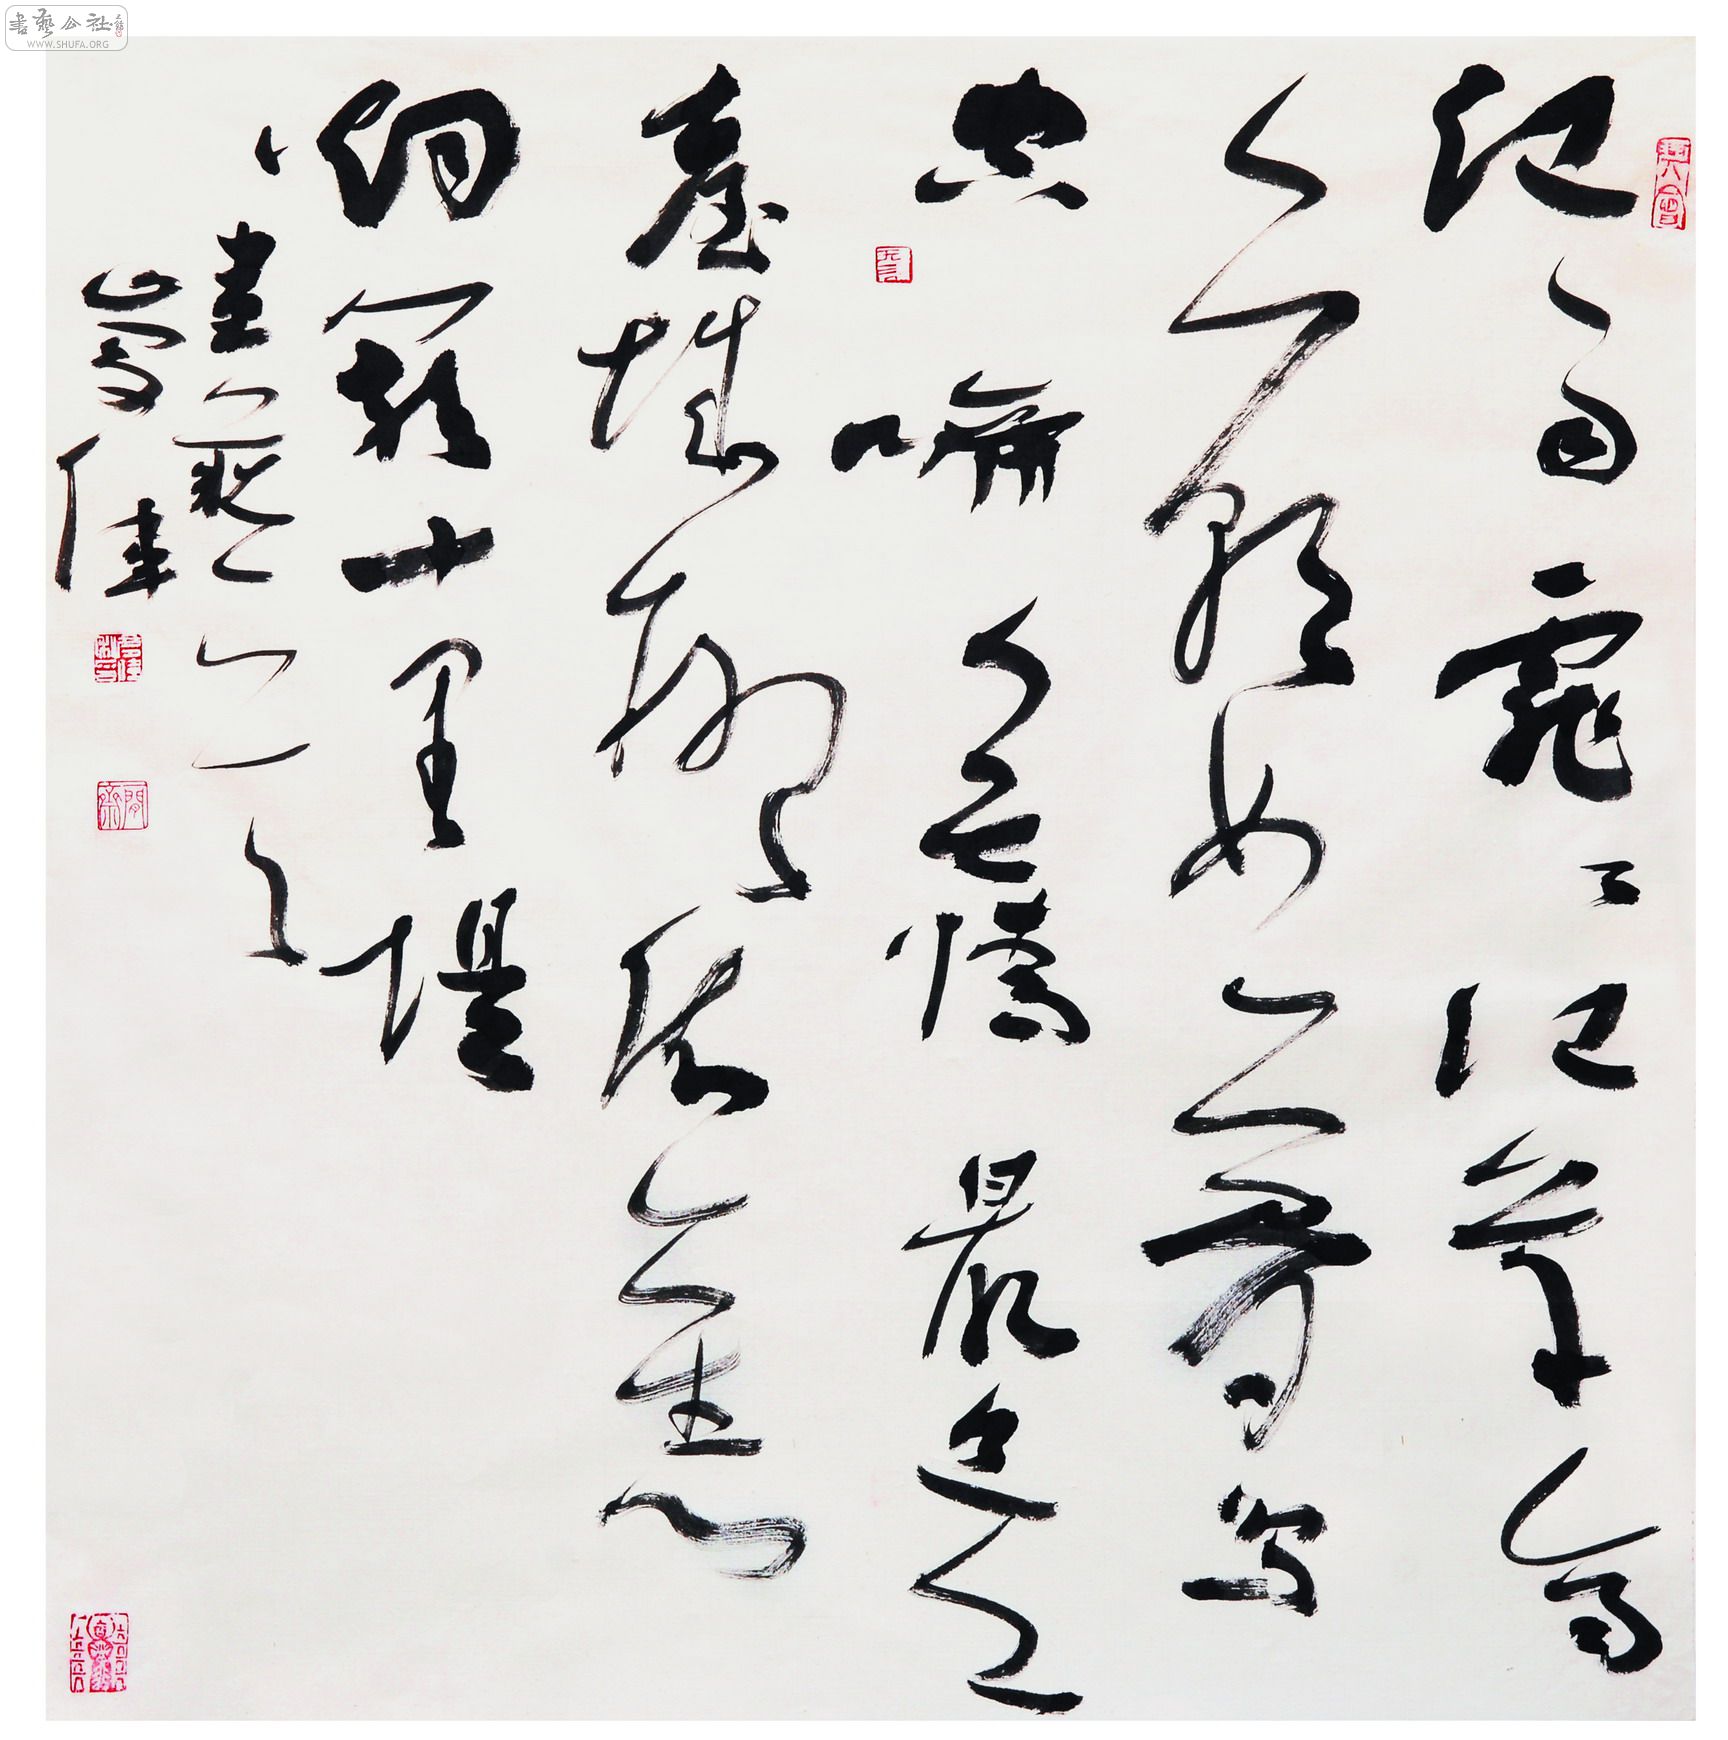 書藝公社
WWW.SHUFA.ORG
江雨霏霏江草齊
六朝如夢鳥
空啼無情最是
臺城柳依舊
烟籠十里堤